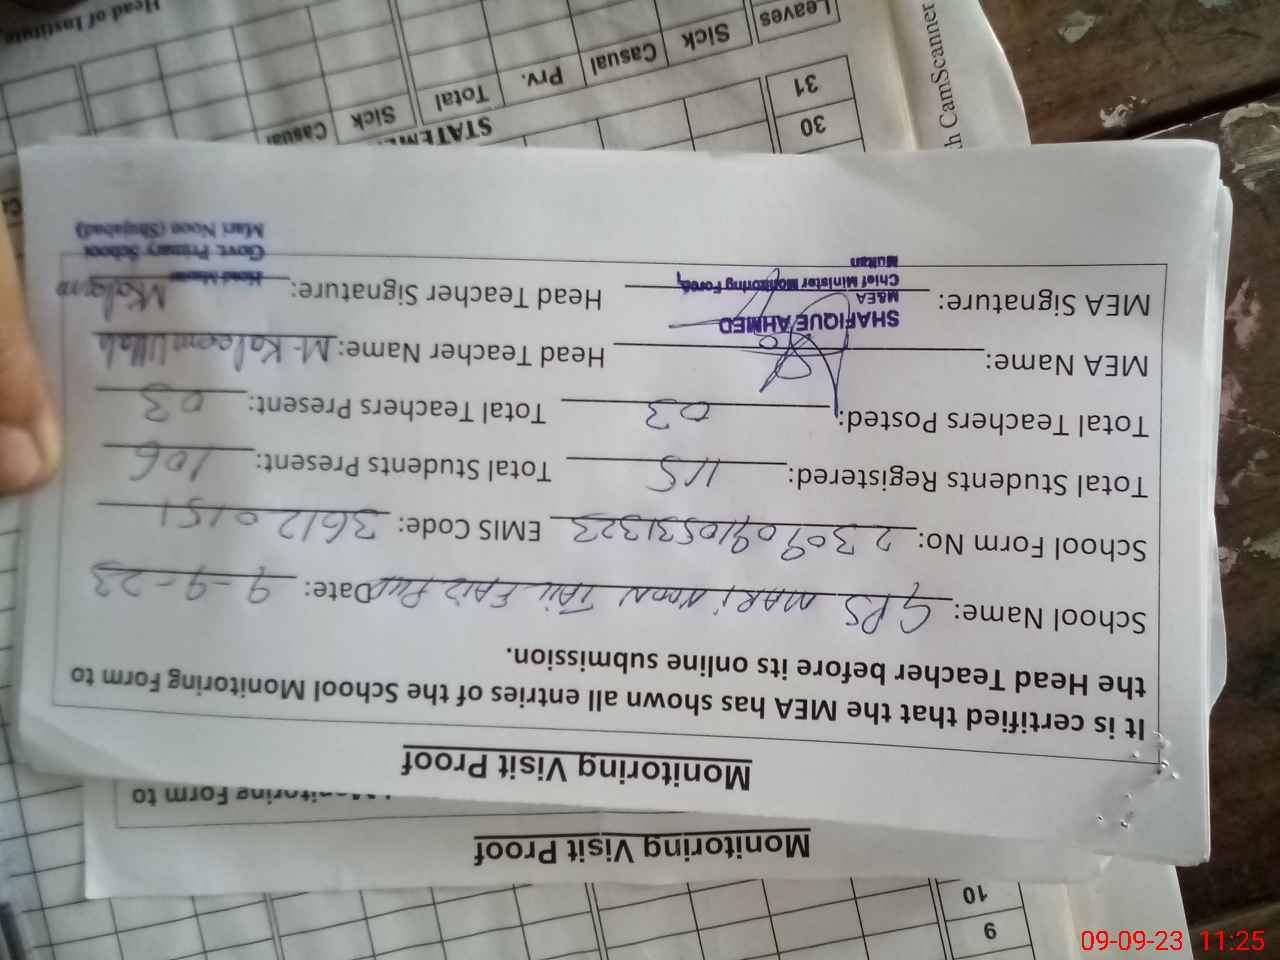 Monitoring Visit Proof
Monitoring Form to
Monitoring Visit Proof
It is certified that the MEA has shown all entries of the School Monitoring Form to
the Head Teacher before its online submission.
School Name: GPS MARI NOON TAIL FAIZ PUR Date: 9-9-23
School Form No: EMIS Code: 36120151
Total Students Registered: 115 Total Students Present: 106
Total Teachers Posted: 03 Total Teachers Present: 03
MEA Name: Head Teacher Name: M. Kaleem Ullah
SHAFIQUE AHMED
M&EA
Chief Minister Monitoring Force,
Multan
MEA Signature: Head Teacher Signature: MKaleem
Head Master
Govt. Primary School
Mari Noon (Shujabad)
9
10
30
31
Leaves Sick Casual Prv. Total Sick Casual
Head of Institute
CamScanner
09-09-23 11:25